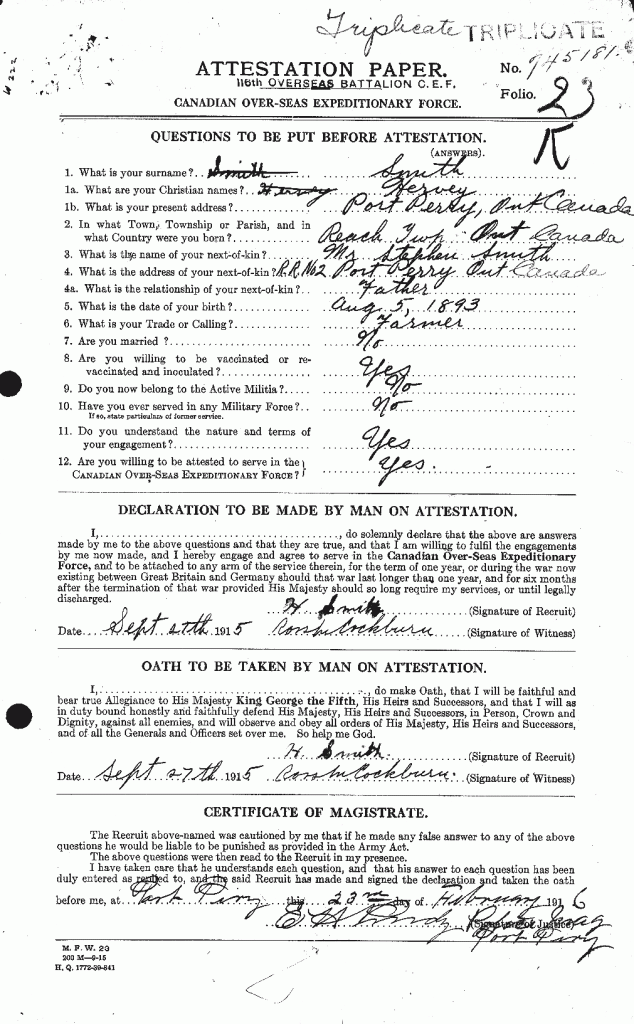 Triplicate TRIPLICATE
ATTESTATION PAPER. No. 745181.
116th OVERSEAS BATTALION C.E.F. Folio. 23
CANADIAN OVER-SEAS EXPEDITIONARY FORCE.
QUESTIONS TO BE PUT BEFORE ATTESTATION.
(ANSWERS).
1. What is your surname?.. Smith Smith
1a. What are your Christian names?.. Hervey Hervey
1b. What is your present address? Port Perry, Ont Canada
2. In what Town, Township or Parish, and in
what Country were you born? Reach Twp. Ont Canada
3. What is the name of your next-of-kin? Mr Stephen Smith
4. What is the address of your next-of-kin? R.R. No2 Port Perry Ont Canada
4a. What is the relationship of your next-of-kin? Father
5. What is the date of your birth? Aug 5, 1893
6. What is your Trade or Calling? Farmer
7. Are you married ? No
8. Are you willing to be vaccinated or re-
vaccinated and inoculated? Yes
9. Do you now belong to the Active Militia? No
10. Have you ever served in any Military Force?.. No
If so, state particulars of former service.
11. Do you understand the nature and terms of
your engagement? Yes
12. Are you willing to be attested to serve in the
CANADIAN OVER-SEAS EXPEDITIONARY FORCE? Yes.
DECLARATION TO BE MADE BY MAN ON ATTESTATION.
I, , do solemnly declare that the above are answers
made by me to the above questions and that they are true, and that I am willing to fulfil the engagements
by me now made, and I hereby engage and agree to serve in the Canadian Over-Seas Expeditionary
Force, and to be attached to any arm of the service therein, for the term of one year, or during the war now
existing between Great Britain and Germany should that war last longer than one year, and for six months
after the termination of that war provided His Majesty should so long require my services, or until legally
discharged.
H Smith (Signature of Recruit)
Date Sept 27th 1915 (Signature of Witness)
OATH TO BE TAKEN BY MAN ON ATTESTATION.
I, , do make Oath, that I will be faithful and
bear true Allegiance to His Majesty King George the Fifth, His Heirs and Successors, and that I will as
in duty bound honestly and faithfully defend His Majesty, His Heirs and Successors, in Person, Crown and
Dignity, against all enemies, and will observe and obey all orders of His Majesty, His Heirs and Successors,
and of all the Generals and Officers set over me. So help me God.
H Smith (Signature of Recruit)
Date Sept 27th 1915 (Signature of Witness)
CERTIFICATE OF MAGISTRATE.
The Recruit above-named was cautioned by me that if he made any false answer to any of the above
questions he would be liable to be punished as provided in the Army Act.
The above questions were then read to the Recruit in my presence.
I have taken care that he understands each question, and that his answer to each question has been
duly entered as replied to, and the said Recruit has made and signed the declaration and taken the oath
before me, at Port Perry this 23 day of February 1916
(Signature of Justice)
Port Perry
M. F. W. 23
200 M—9-15
H. Q. 1772-39-841